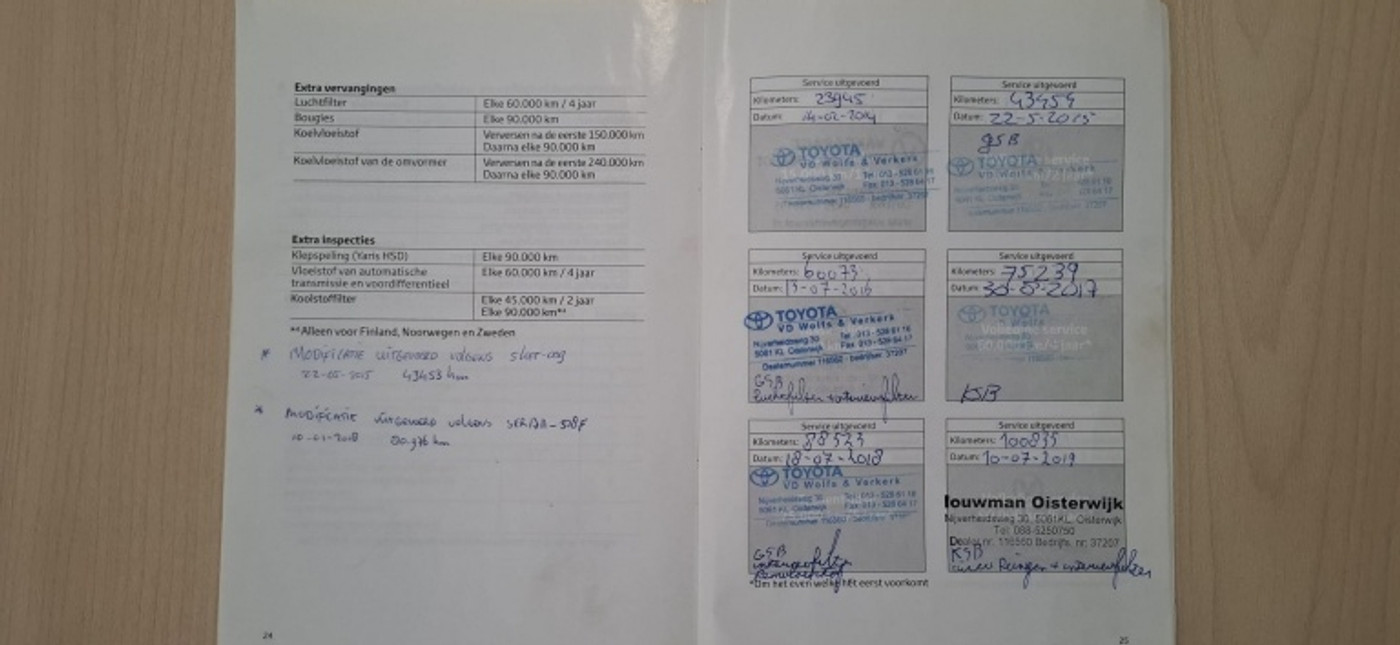 Extra vervangingen
Luchtfilter Elke 60.000 km / 4 jaar
Bougies Elke 90.000 km
Koelvloeistof Verversen na de eerste 150.000 km
Daarna elke 90.000 km
Koelvloeistof van de omvormer Verversen na de eerste 240.000 km
Daarna elke 90.000 km
Extra inspecties
Klepspeling (Yaris HSD) Elke 90.000 km
Vloeistof van automatische Elke 60.000 km / 4 jaar
transmissie en voordifferentieel
Koolstoffilter Elke 45.000 km / 2 jaar
Elke 90.000 km**
**Alleen voor Finland, Noorwegen en Zweden
* MODIFICATIE UITGEVOERD volgens
22-05-2015 43453 km
* MODIFICATIE UITGEVOERD volgens
10-01-2018 km
24
Service uitgevoerd
Kilometers: 23945
Datum: 14-02-2014
TOYOTA
VD Wolfs & Verkerk
Nijverheidsweg 30 Tel. 013 - 528 61 16
5061 KL Oisterwijk Fax 013 - 528 64 17
Service uitgevoerd
Kilometers: 43454
Datum: 22-5-2015
GSB
TOYOTA
VD Wolfs
Service uitgevoerd
Kilometers: 60073
Datum: 13-07-2016
TOYOTA
VD Wolfs & Verkerk
Nijverheidsweg 30 Tel. 013 - 528 61 16
5061 KL Oisterwijk Fax 013 - 528 64 17
Dealernummer 116560 - bedrijfsnr. 37207
GSB
Luchtfilter + interieurfilter
Service uitgevoerd
Kilometers: 75239
Datum: 2017
TOYOTA
KSB
Service uitgevoerd
Kilometers: 88523
Datum: 18-07-2018
TOYOTA
VD Wolfs & Verkerk
Nijverheidsweg 30 Tel. 013 - 528 61 16
5061 KL Oisterwijk Fax 013 - 528 64 17
GSB
interieurfilter
Remvloeistof
Service uitgevoerd
Kilometers: 100835
Datum: 10-07-2019
louwman Oisterwijk
Nijverheidsweg 30, 5061KL, Oisterwijk
Tel: 088-5250750
Dealer nr. 116560 Bedrijfs. nr. 37207
KSB
Reinigen + interieurfilter
*Om het even welke het eerst voorkomt
25